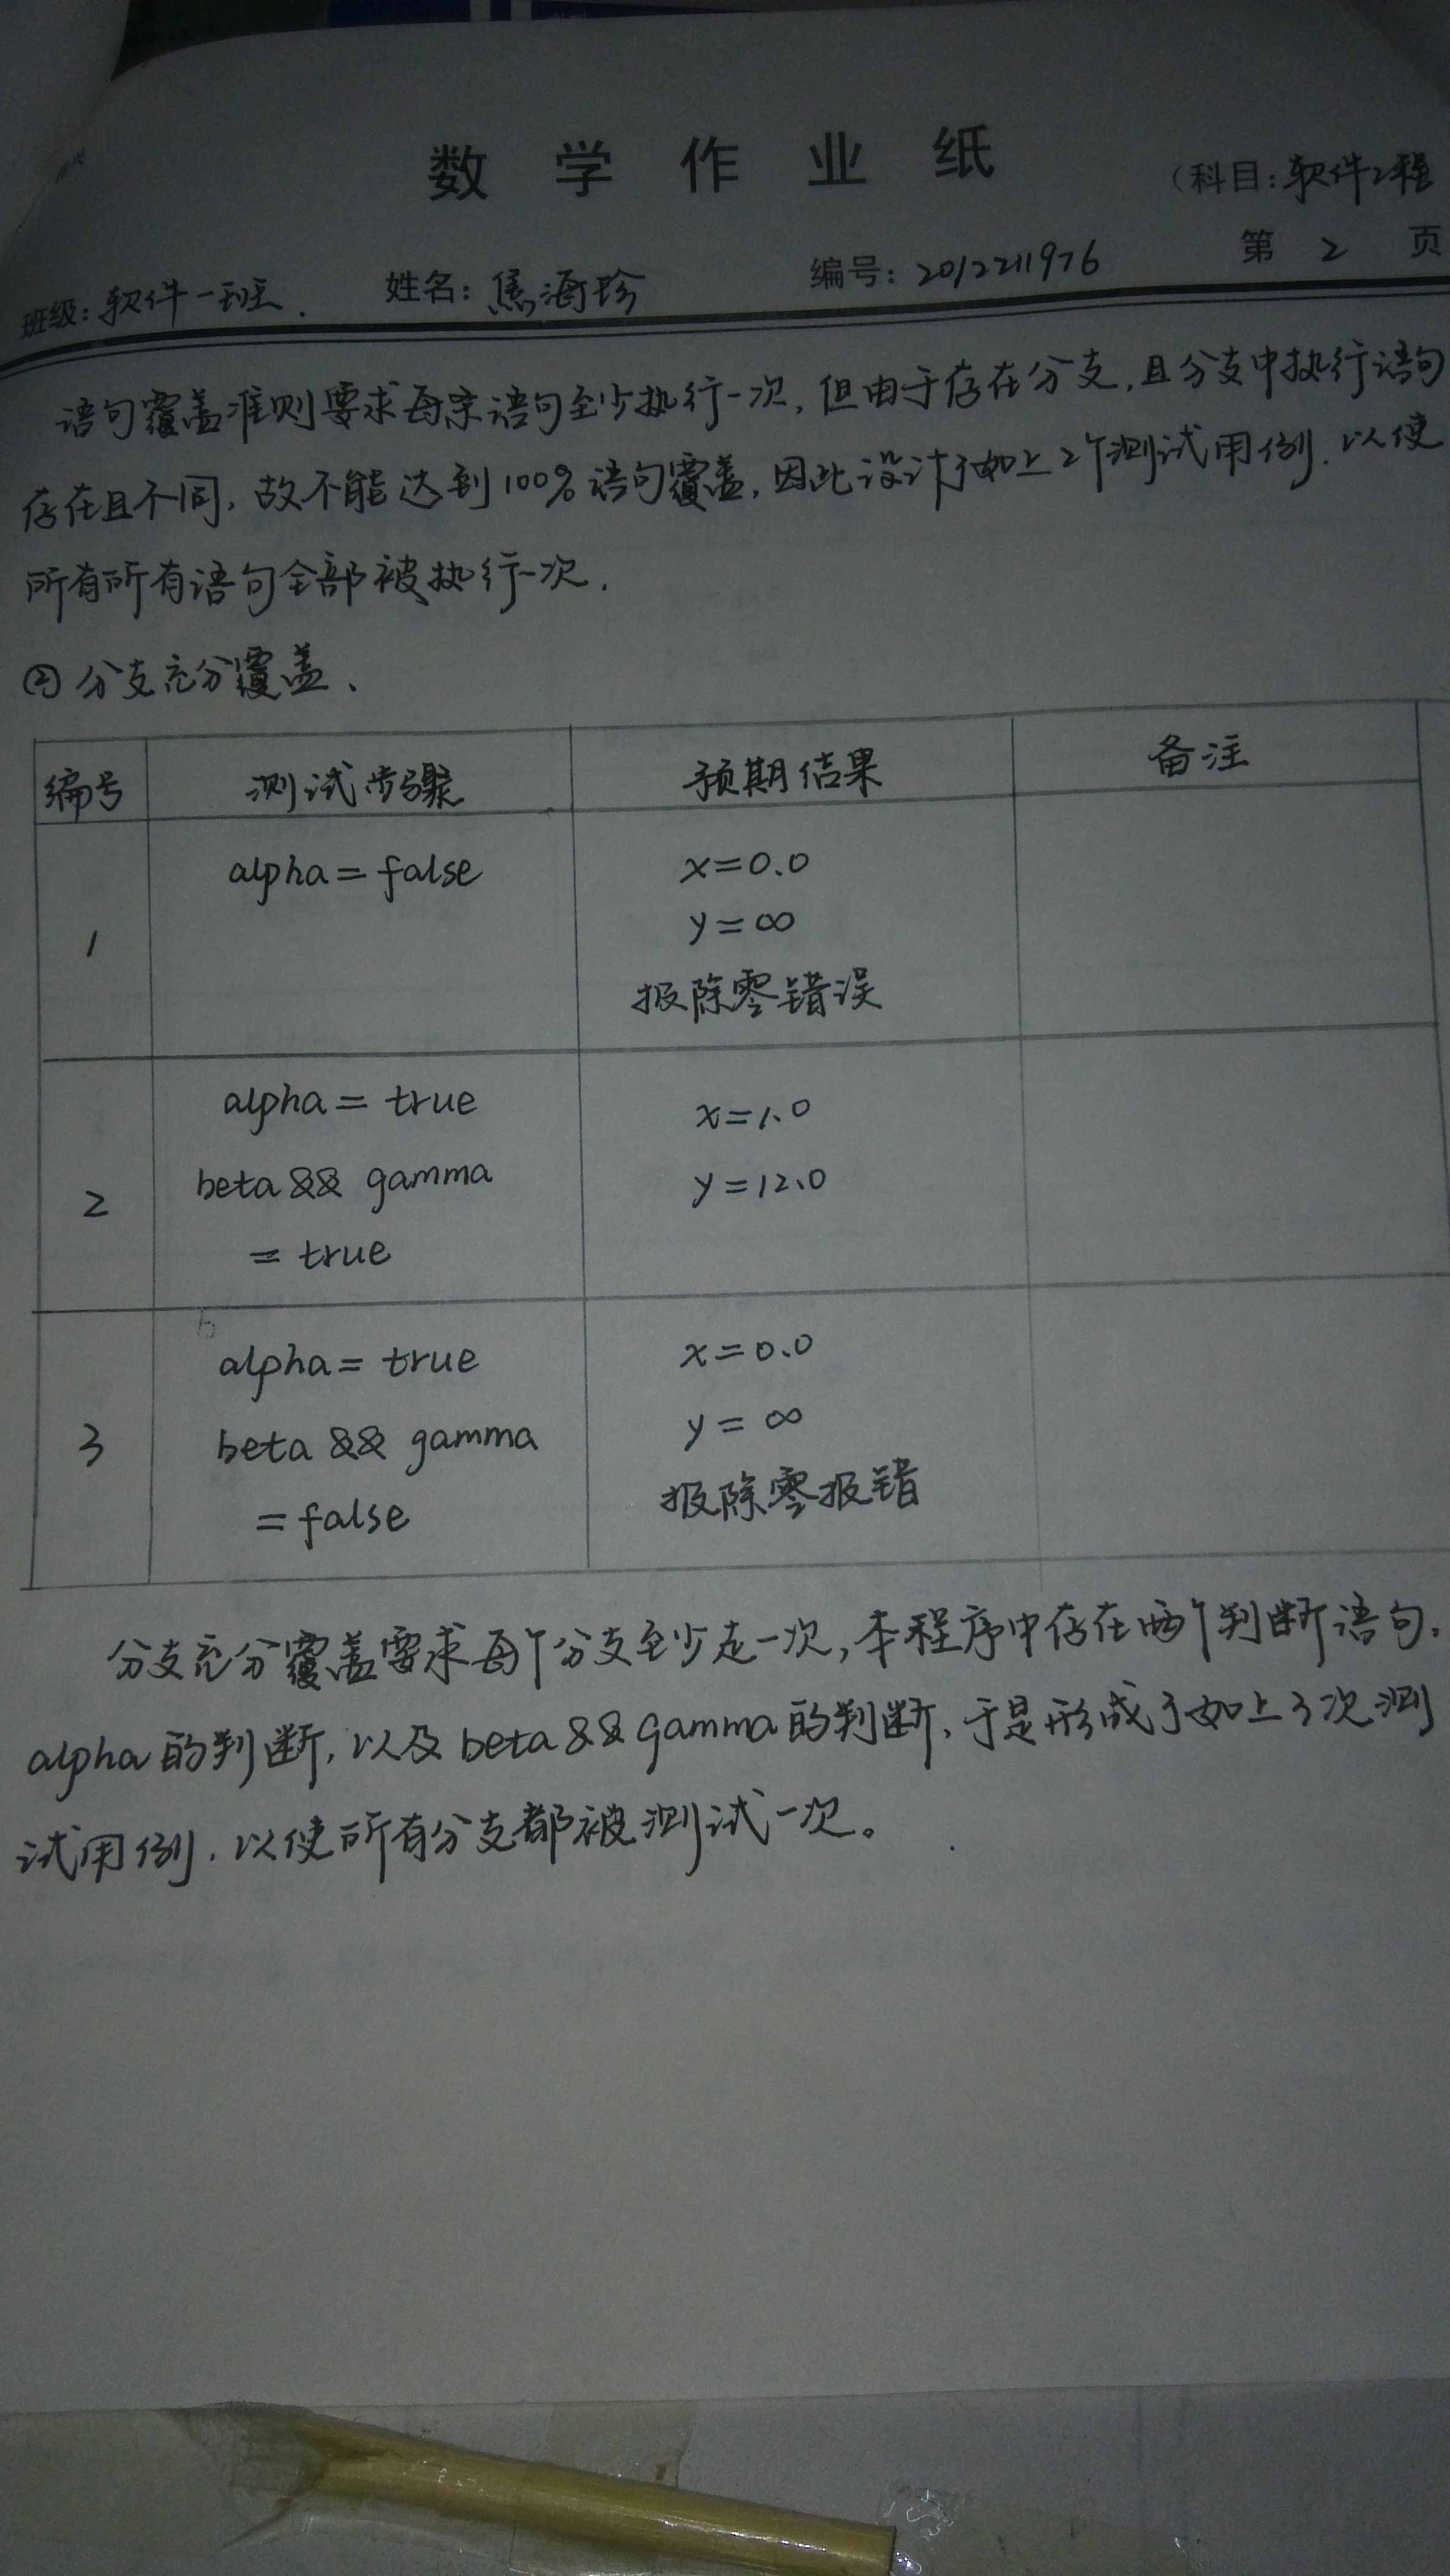 数学作业纸
(科目:软件工程
班级:软件一班. 姓名:焦海珍 编号:2012211976 第 2 页
语句覆盖准则要求每条语句至少执行一次,但由于存在分支,且分支中执行语句
存在且不同,故不能达到100%语句覆盖,因此设计了如上2个测试用例.以使
所有所有语句全部被执行一次.
② 分支充分覆盖、
编号 测试步骤 预期结果 备注
1 alpha=false x=0.0
y=∞
报除零错误
2 alpha=true x=1.0
beta && gamma y=12.0
=true
3 alpha=true x=0.0
beta && gamma y=∞
=false 报除零报错
分支充分覆盖要求每个分支至少走一次,本程序中存在两个判断语句,
alpha的判断,以及beta && gamma的判断,于是形成了如上3次测
试用例.以使所有分支都被测试一次。